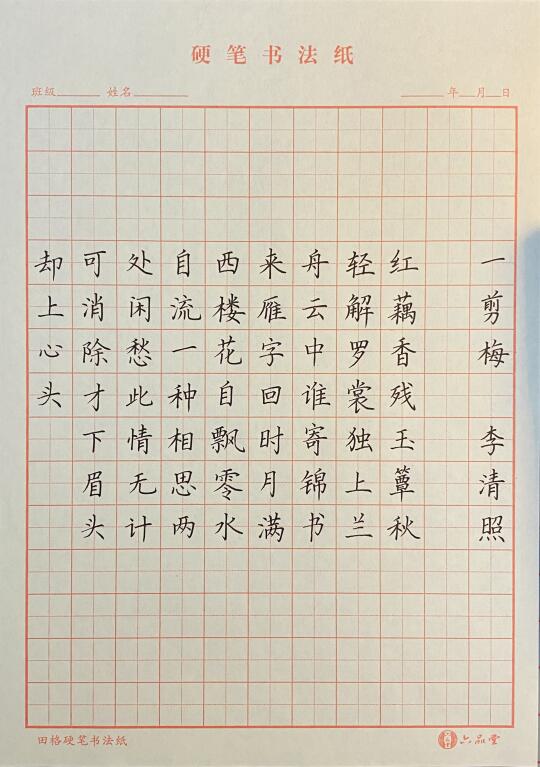 硬笔书法纸
班级 姓名 年 月 日
一剪梅 李清照
红藕香残玉簟秋
轻解罗裳独上兰
舟云中谁寄锦书
来雁字回时月满
西楼花自飘零水
自流一种相思两
处闲愁此情无计
可消除才下眉头
却上心头
田格硬笔书法纸
六品堂